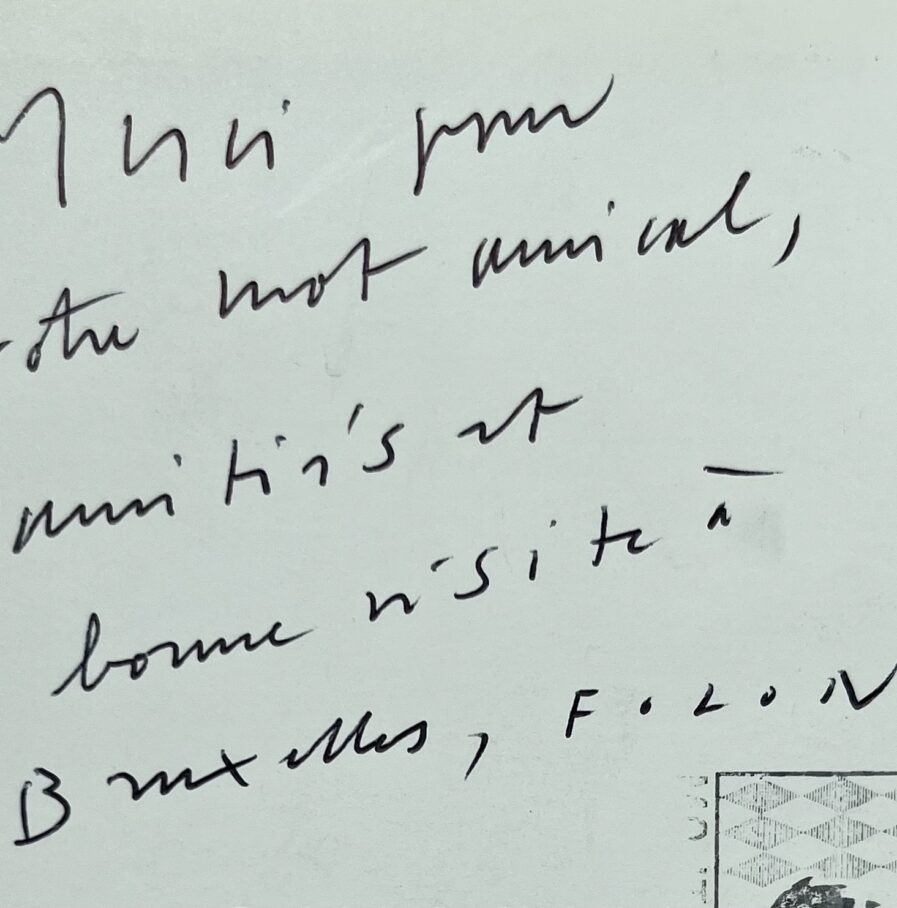 Merci pour
votre mot amical,
amitiés et
bonne visite à
Bruxelles, FOLON